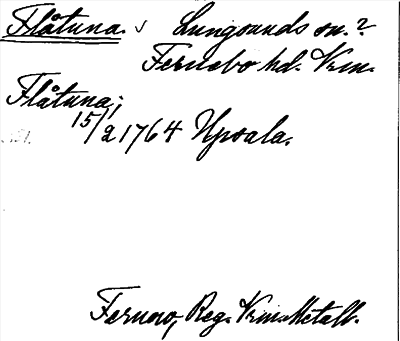 Flåtuna. Lungsunds sn.?
Fernebo hd. Vrm.
Flåtuna;
15/2 1764 Upsala.
Fernow, Reg. Vrm. Metall.